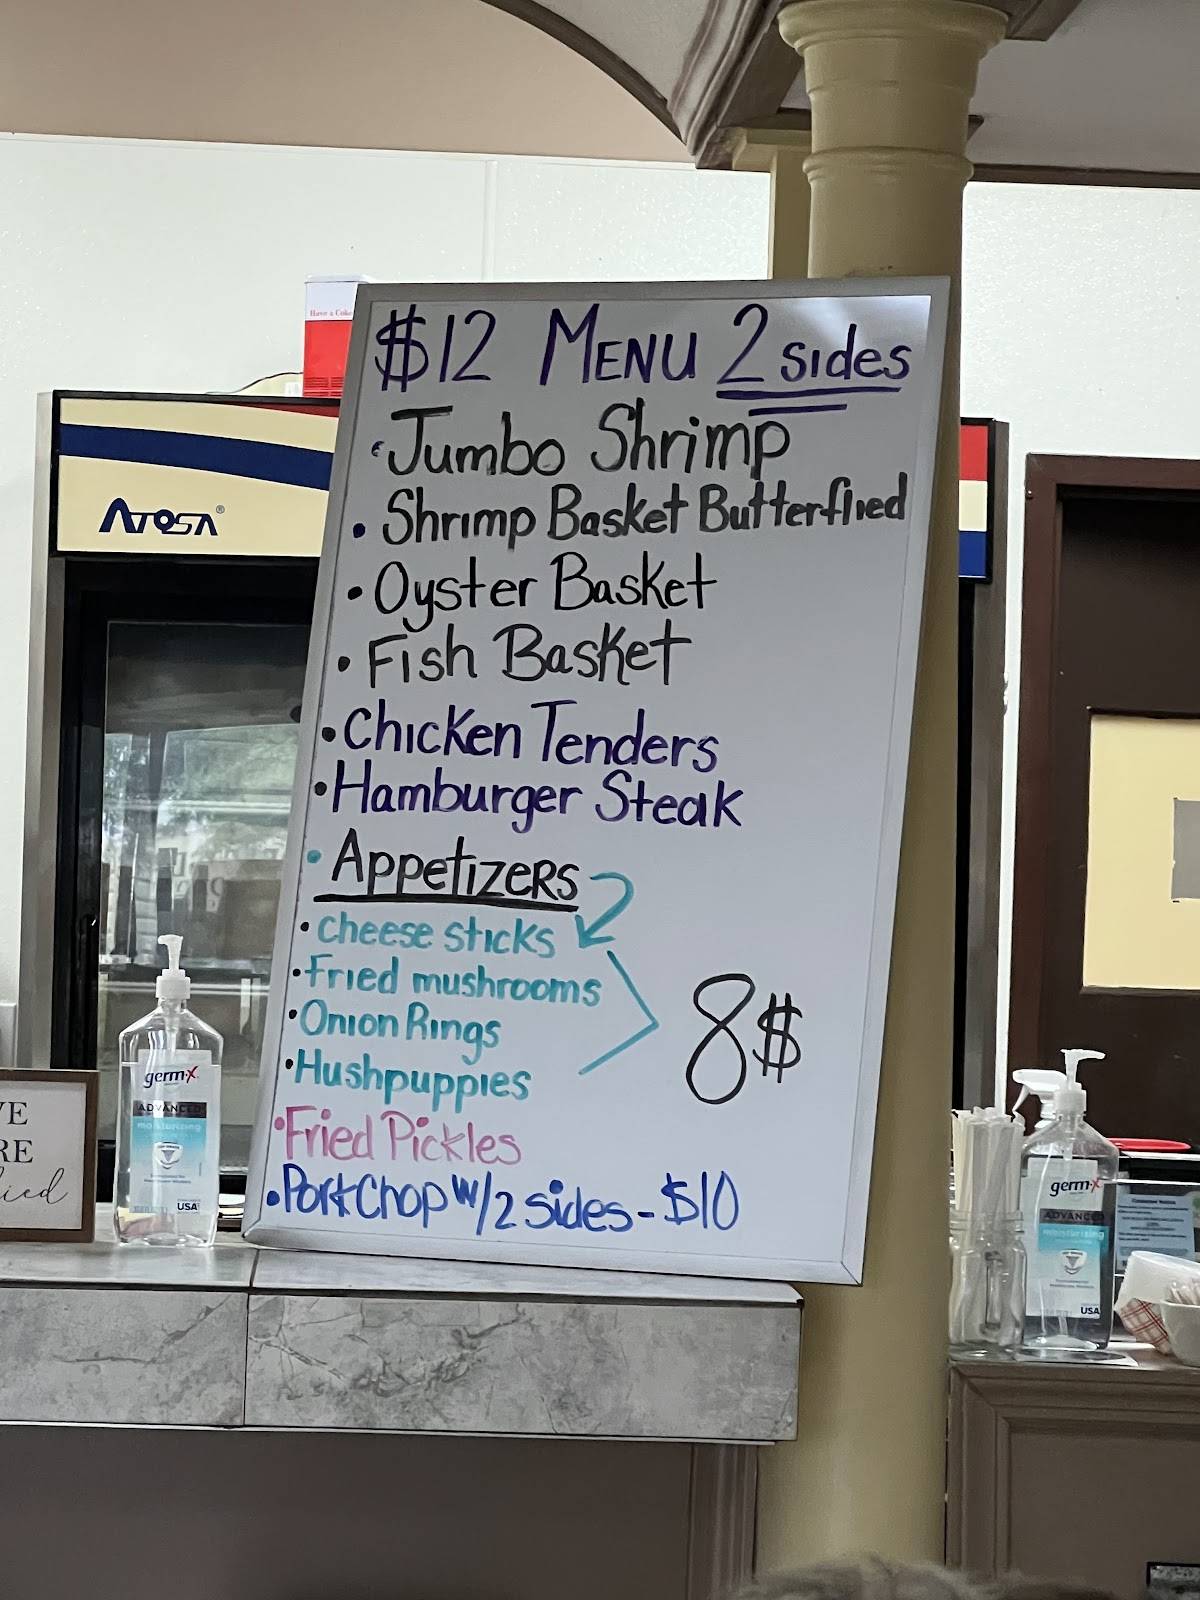 $12 MENU 2 sides
• Jumbo Shrimp
• Shrimp Basket Butterflied
• Oyster Basket
• Fish Basket
• Chicken Tenders
• Hamburger Steak
• Appetizers
• cheese sticks
• Fried mushrooms
• Onion Rings
• Hushpuppies
8$
• Fried Pickles
• Pork Chop w/ 2 sides - $10
Have a Coke
ATOSA®
germ-x
ADVANCED
moisturizing
USA
germ-x
ADVANCED
moisturizing
USA
VE
RE
ied